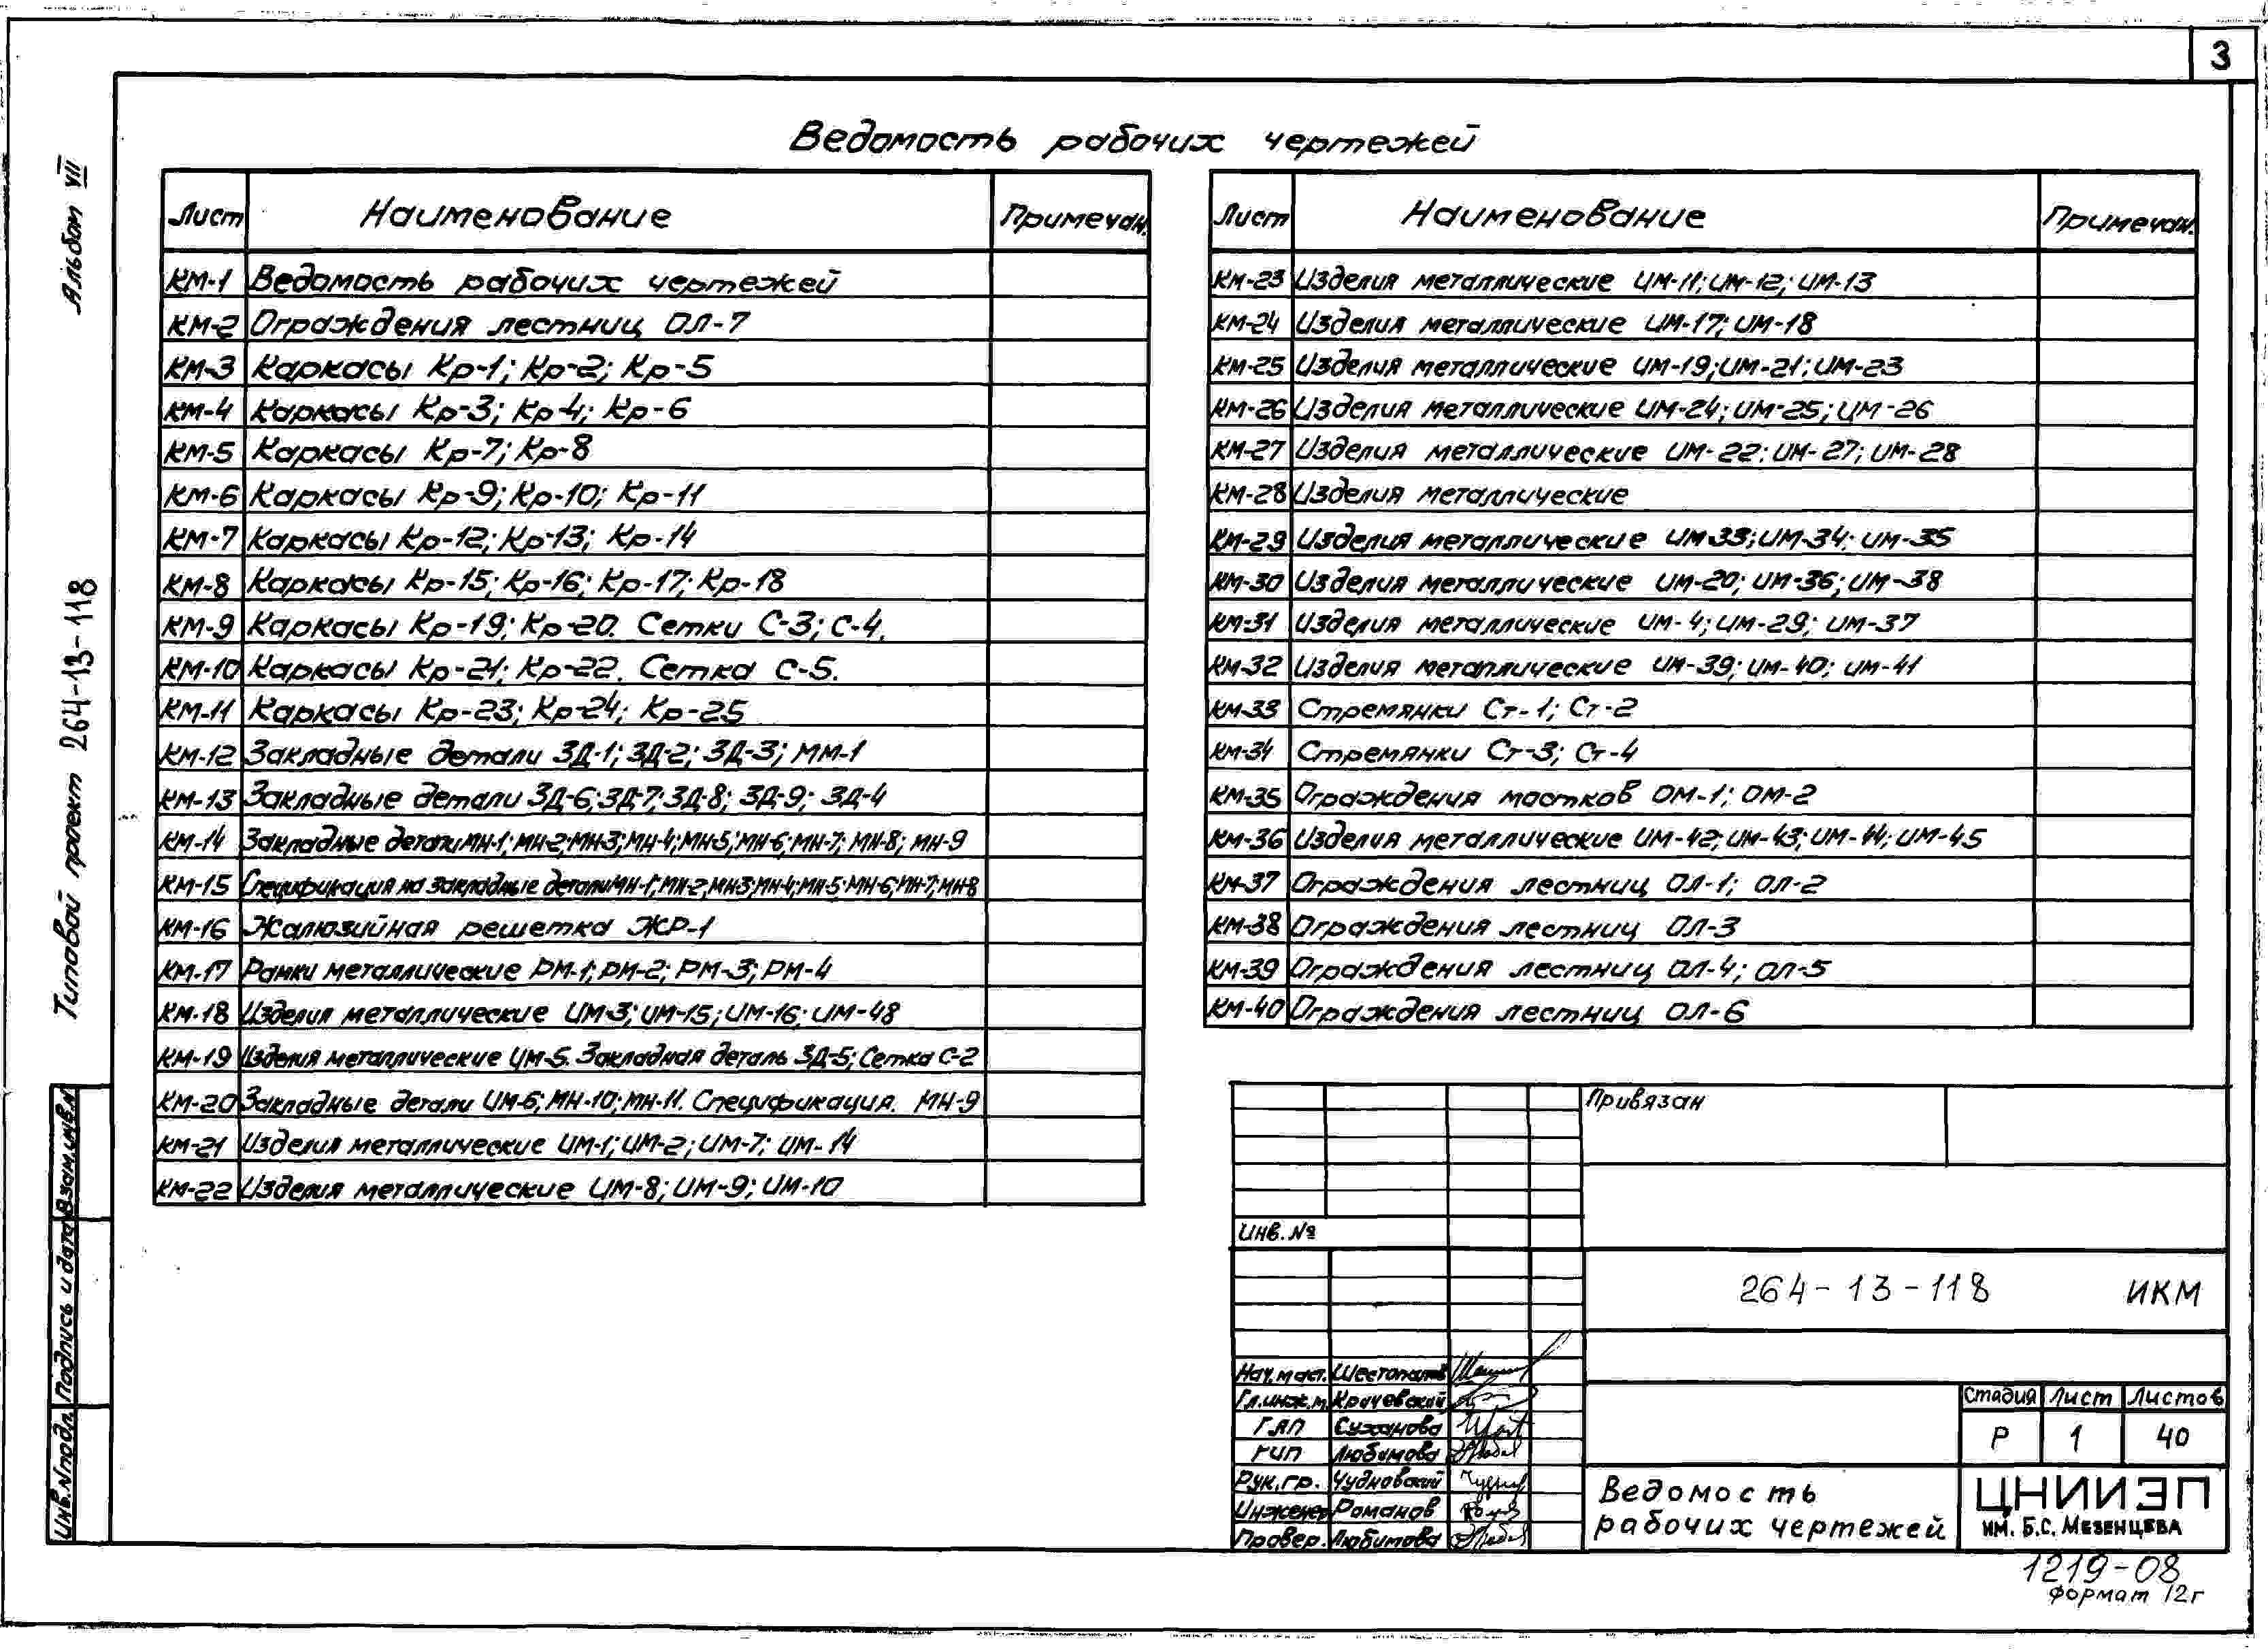 3
Альбом VII
Типовой проект 264-13-118
Ведомость рабочих чертежей
Лист Наименование Примечан.
КМ-1 Ведомость рабочих чертежей
КМ-2 Ограждения лестниц ОЛ-7
КМ-3 Каркасы Кр-1; Кр-2; Кр-5
КМ-4 Каркасы Кр-3; Кр-4; Кр-6
КМ-5 Каркасы Кр-7; Кр-8
КМ-6 Каркасы Кр-9; Кр-10; Кр-11
КМ-7 Каркасы Кр-12; Кр-13; Кр-14
КМ-8 Каркасы Кр-15; Кр-16; Кр-17; Кр-18
КМ-9 Каркасы Кр-19; Кр-20. Сетки С-3; С-4.
КМ-10 Каркасы Кр-21; Кр-22. Сетка С-5.
КМ-11 Каркасы Кр-23; Кр-24; Кр-25
КМ-12 Закладные детали ЗД-1; ЗД-2; ЗД-3; ММ-1
КМ-13 Закладные детали ЗД-6; ЗД-7; ЗД-8; ЗД-9; ЗД-4
КМ-14 Закладные детали МН-1; МН-2; МН-3; МН-4; МН-5; МН-6; МН-7; МН-8; МН-9
КМ-15 Спецификация на закладные детали МН-1; МН-2; МН-3; МН-4; МН-5; МН-6; МН-7; МН-8
КМ-16 Жалюзийная решетка ЖР-1
КМ-17 Рамки металлические РМ-1; РМ-2; РМ-3; РМ-4
КМ-18 Изделия металлические ИМ-3; ИМ-15; ИМ-16; ИМ-48
КМ-19 Изделия металлические ИМ-5. Закладная деталь ЗД-5; Сетка С-2
КМ-20 Закладные детали ИМ-6; МН-10; МН-11. Спецификация. МН-9
КМ-21 Изделия металлические ИМ-1; ИМ-2; ИМ-7; ИМ-14
КМ-22 Изделия металлические ИМ-8; ИМ-9; ИМ-10
Лист Наименование Примечан.
КМ-23 Изделия металлические ИМ-11; ИМ-12; ИМ-13
КМ-24 Изделия металлические ИМ-17; ИМ-18
КМ-25 Изделия металлические ИМ-19; ИМ-21; ИМ-23
КМ-26 Изделия металлические ИМ-24; ИМ-25; ИМ-26
КМ-27 Изделия металлические ИМ-22; ИМ-27; ИМ-28
КМ-28 Изделия металлические
КМ-29 Изделия металлические ИМ-33; ИМ-34; ИМ-35
КМ-30 Изделия металлические ИМ-20; ИМ-36; ИМ-38
КМ-31 Изделия металлические ИМ-4; ИМ-29; ИМ-37
КМ-32 Изделия металлические ИМ-39; ИМ-40; ИМ-41
КМ-33 Стремянки Ст-1; Ст-2
КМ-34 Стремянки Ст-3; Ст-4
КМ-35 Ограждения мостков ОМ-1; ОМ-2
КМ-36 Изделия металлические ИМ-42; ИМ-43; ИМ-44; ИМ-45
КМ-37 Ограждения лестниц ОЛ-1; ОЛ-2
КМ-38 Ограждения лестниц ОЛ-3
КМ-39 Ограждения лестниц ОЛ-4; ОЛ-5
КМ-40 Ограждения лестниц ОЛ-6
Привязан
Инв. №
264-13-118 ИКМ
Нач. маст. Шестопалов
Гл. инж. м. Крачевский
ГАП Суханова
ГИП Любимова
Рук. гр. Чудновский
Инженер Романов
Провер. Любимова
Стадия Лист Листов
Р 1 40
Ведомость
рабочих чертежей
ЦНИИЭП
им. Б.С. Мезенцева
1219-08
формат 12г
Инв. № подл. Подпись и дата Взам. инв. №